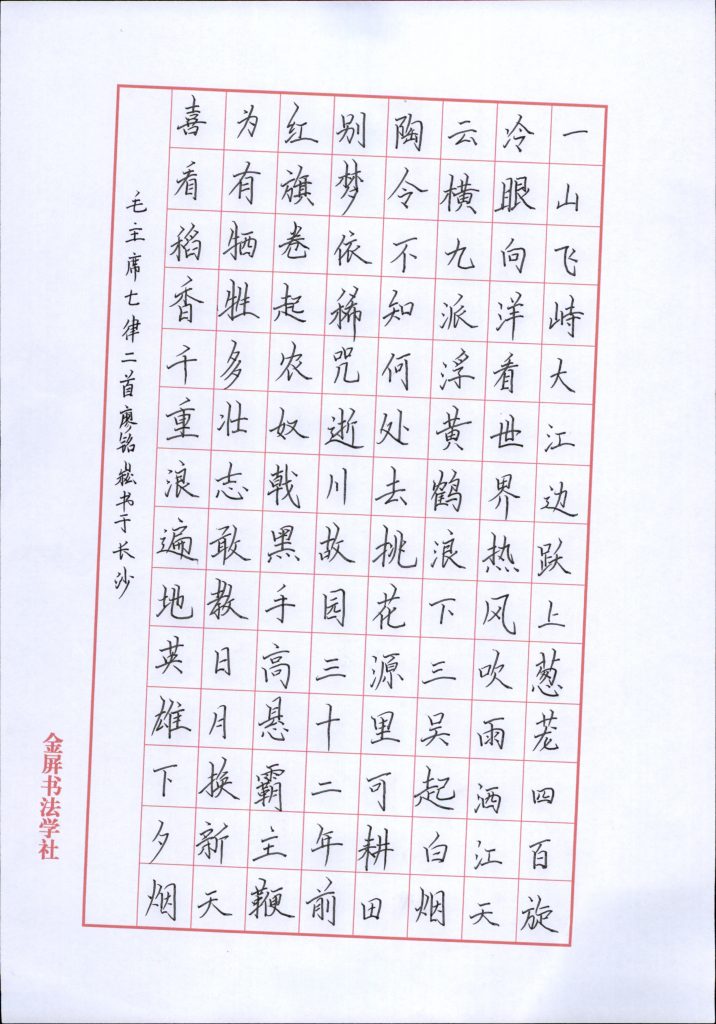 一山飞峙大江边跃上葱茏四百旋
冷眼向洋看世界热风吹雨洒江天
云横九派浮黄鹤浪下三吴起白烟
陶令不知何处去桃花源里可耕田
别梦依稀咒逝川故园三十二年前
红旗卷起农奴戟黑手高悬霸主鞭
为有牺牲多壮志敢教日月换新天
喜看稻香千重浪遍地英雄下夕烟
毛主席七律二首廖铭崧书于长沙
金屏书法学社